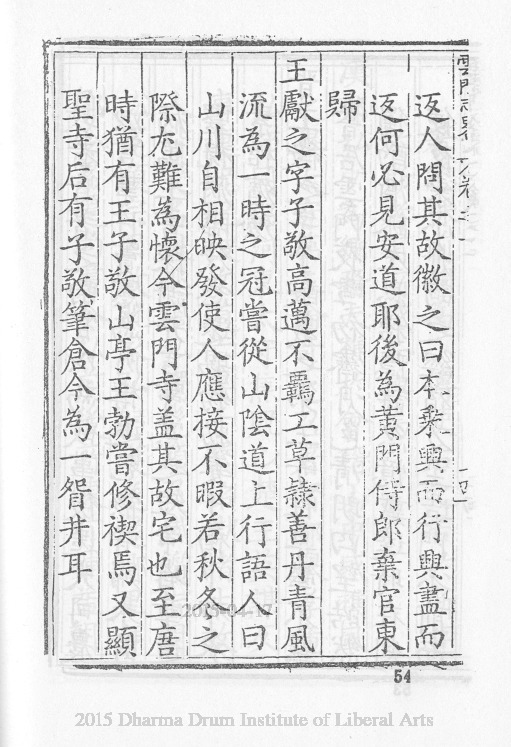 返人問其故徽之曰本乘興而行興盡而
返何必見安道耶後為黄門侍郎棄官東
歸
王獻之字子敬高邁不羈工草隸善丹青風
流為一時之冠嘗從山陰道上行語人曰
山川自相映發使人應接不暇若秋冬之
際尤難為懷今雲門寺盖其故宅也至唐
時猶有王子敬山亭王勃嘗修禊焉又顯
聖寺后有子敬筆倉今為一眢井耳
54
2015 Dharma Drum Institute of Liberal Arts